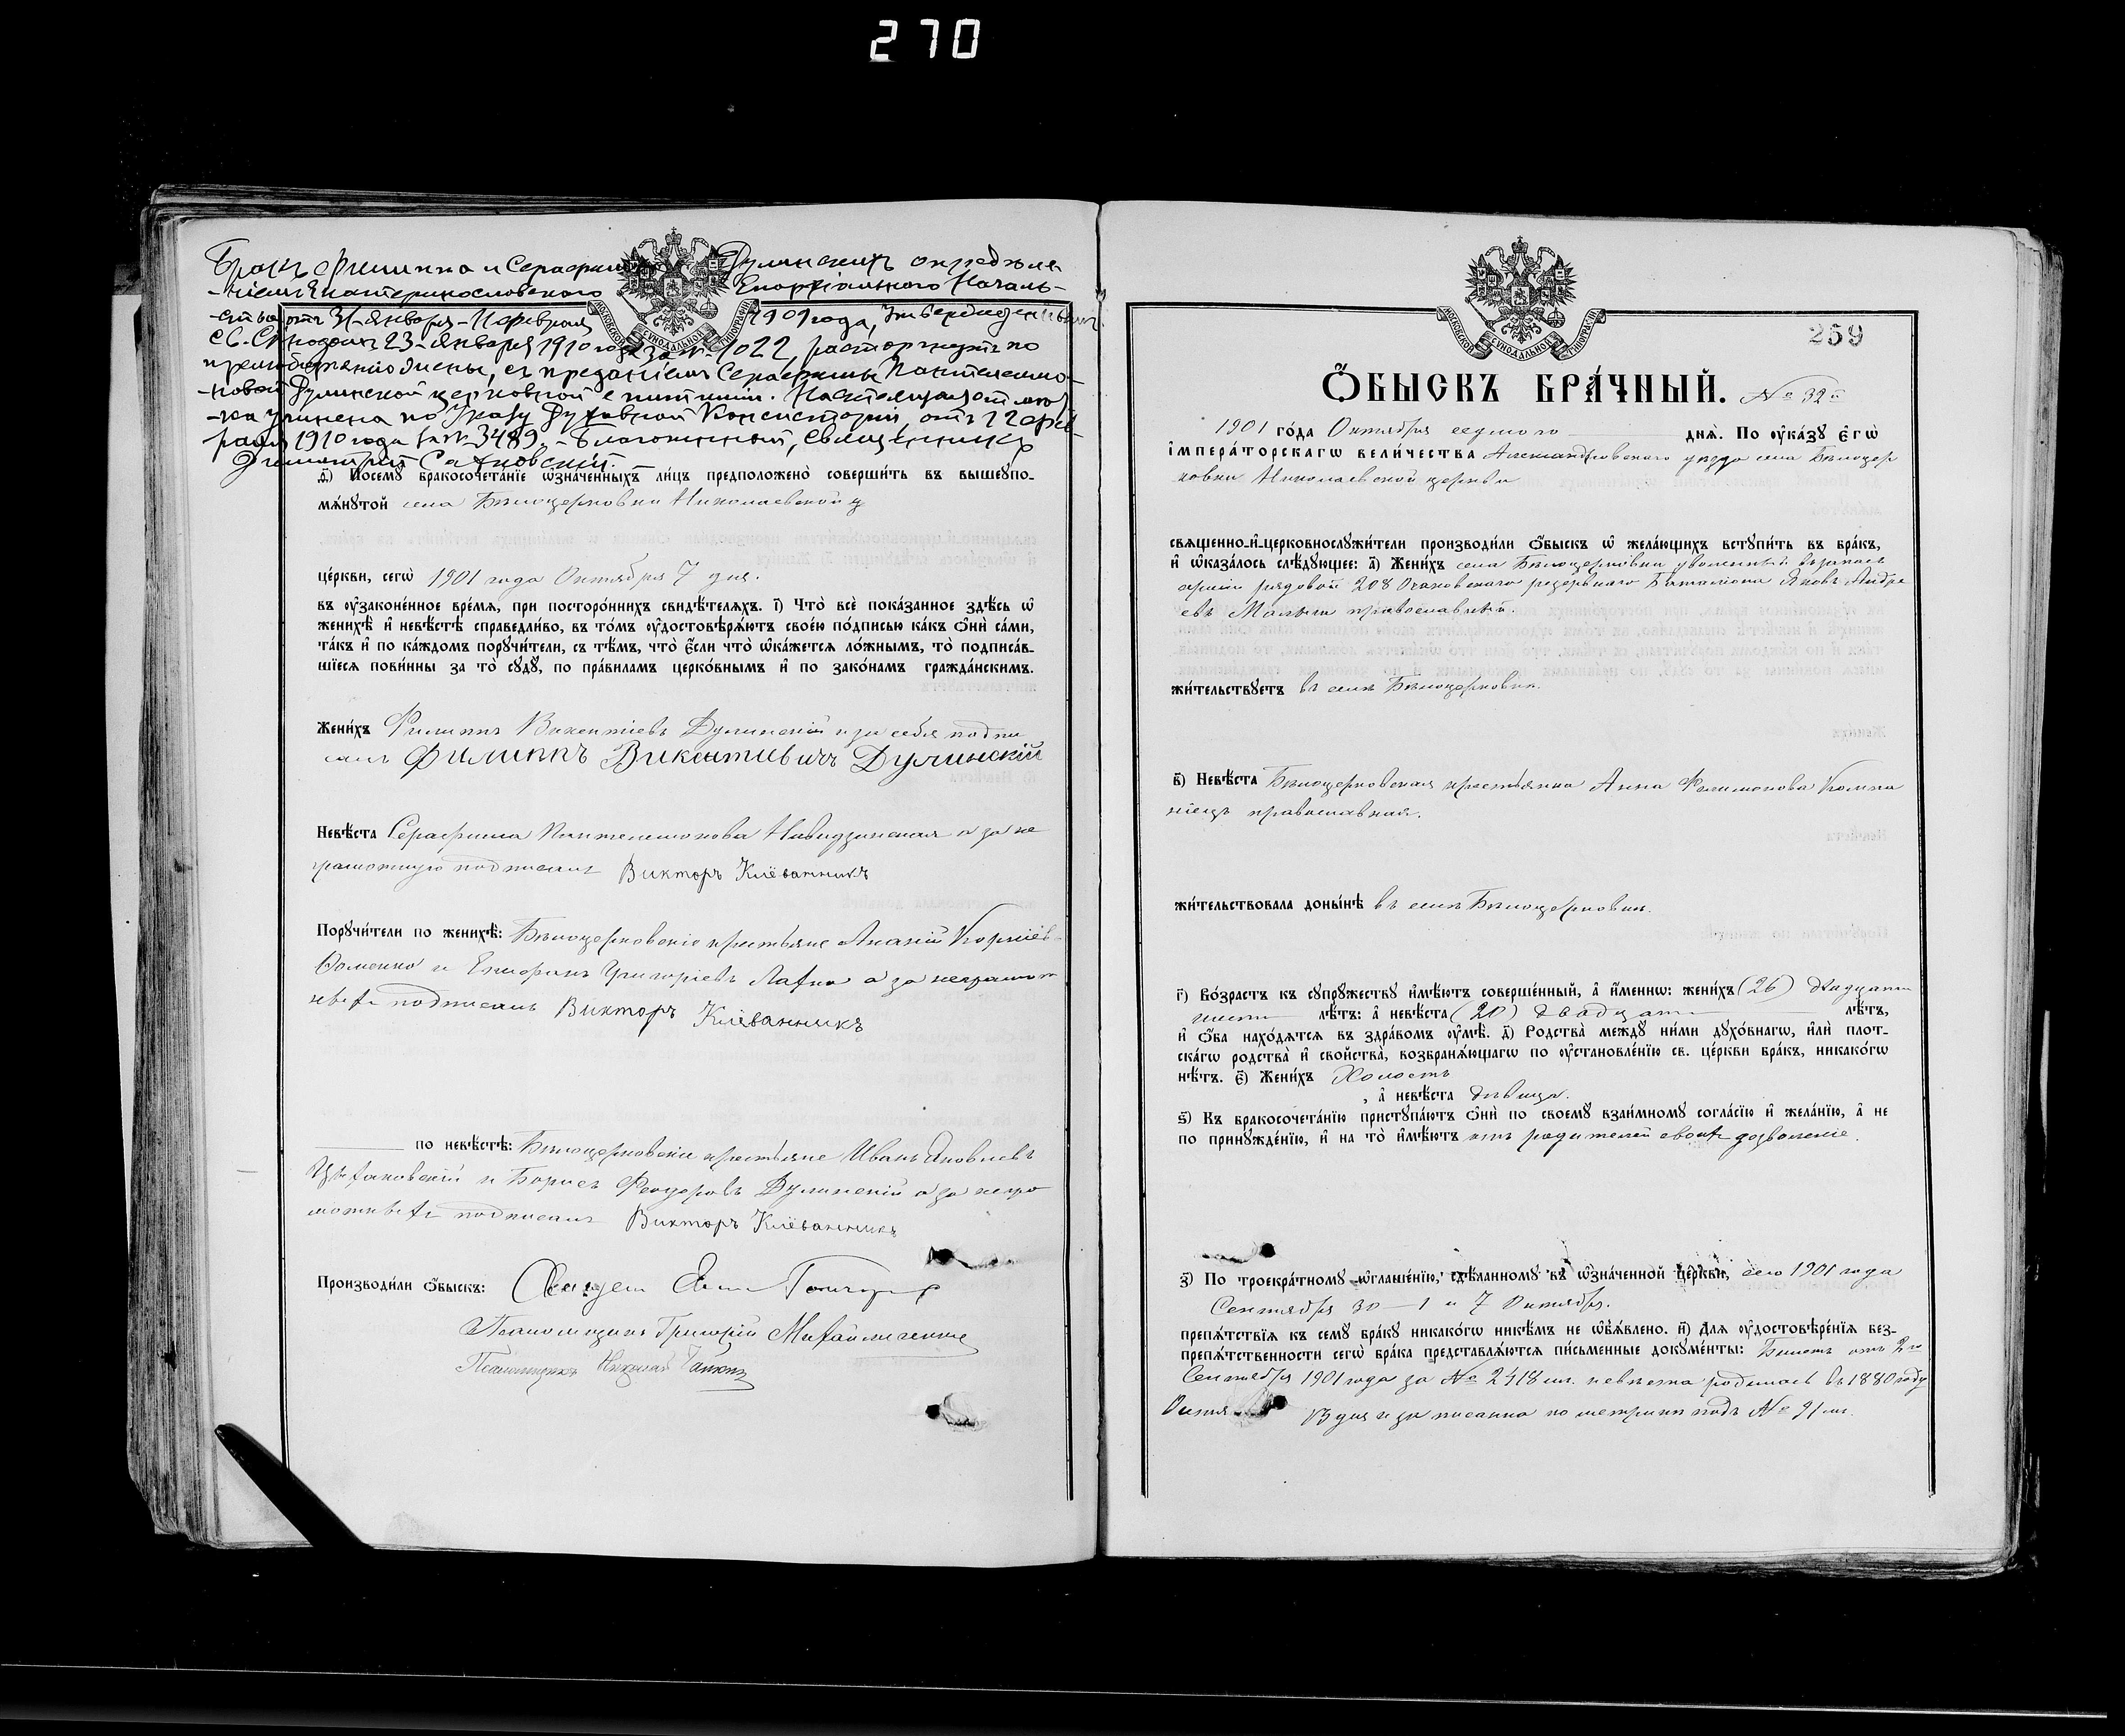 270
Бракъ Филиппа и Серафимы Дулинскихъ опредѣле-
-ніемъ Екатеринославского Епархіального Началь-
-ства отъ 31-Января - 11 февраля 1909 года, утвержденнымъ
Св. Синодомъ 23-Января 1910 года за № 1022, расторгнутъ по
прелюбодѣянію жены, съ преданіемъ Серафимы Пантелеимо-
-новой Дулинской церковной епитиміи. Настоящая отмѣт-
-ка учинена по Указу Духовной Консисторіи, отъ 12 фев-
раля 1910 года за № 3489. - Благочинный, Священникъ
Димитрій Сахновскій.
д҃) Посемꙋ̀ бракосочета́нїе ѡ҆зна́ченныхъ ли́цъ предположено̀ соверши́ть въ вышеꙋпо-
мѧ́нꙋтой села Бѣлоцерковки Николаевской ц
це́ркви, сегѡ̀ 1901 года Октября 7 дня.
въ ᲂу҆законе́нное вре́мѧ, при посторо́ннихъ свидѣ́телѧхъ. і҃) Что̀ всѐ пока́занное здѣ́сь ѡ҆
женихѣ̀ и҆ невѣ́стѣ справедли́во, въ то́мъ ᲂу҆достовѣрѧ́ютъ свое́ю по́дписью ка́къ ѻ҆нѝ са́ми,
та́къ и҆ по ка́ждомъ порꙋчи́тели, съ тѣ́мъ, что̀ є҆́сли что̀ ѡ҆ка́жетсѧ ло́жнымъ, то̀ подписа́в-
шїесѧ пови́нны за то̀ сꙋдꙋ̀, по пра́виламъ церко́внымъ и҆ по зако́намъ гражда́нскимъ.
Жени́хъ Филиппъ Викентіевъ Дулинскій и за себя подпи
салъ Филиппъ Викентиевичъ Дулинскій
Невѣ́ста Серафима Пантелеимонова а за не
грамотную подписалъ Викторъ Кліёванникъ
Порꙋчи́тели по женихѣ̀: Бѣлоцерковскіе крестьяне Ананій Корніевъ
Фоменко и Епифанъ Григоріевъ Лахно а за неграмот
ныхъ подписалъ Викторъ Кліеванникъ
по невѣ́стѣ: Бѣлоцерковскіе крестьяне Иванъ Яковлевъ
и Борисъ Феодоровъ Дулинскій а за негра
мотныхъ подписалъ Викторъ Кліёванникъ
Производи́ли ѻ҆́быскъ:
Псаломщикъ Григорій Михайличенко
Псаломщикъ Николай
259
Ѻ҆́БЫСКЪ БРА́ЧНЫЙ. № 32й
1901 го́да Октября седмого днѧ̀. По ᲂу҆ка́зꙋ Є҆гѡ̀
і҆мпера́торскагѡ вели́чества Александровского уѣзда села Бѣлоцер
ковки Николаевской церкви
свѧще́нно-и҆-церковнослꙋжи́тели производи́ли ѻ҆́быскъ ѡ҆ жела́ющихъ встꙋпи́ть въ бра́къ,
и҆ ѡ҆каза́лось слѣ́дꙋющее: а҃) Жени́хъ села Бѣлоцерковки уволенный въ запасъ
арміи рядовой 208 Очаковского резервнаго Баталіона Яковъ Андре
евъ Малышъ православный.
жи́тельствꙋетъ въ селѣ Бѣлоцерковкѣ.
в҃) Невѣ́ста Бѣлоцерковская крестьянка Анна Филимонова Компа
ніецъ православная.
жи́тельствовала доны́нѣ въ селѣ Бѣлоцерковкѣ.
г҃) Во́зрастъ къ сꙋпрꙋ́жествꙋ и҆мѣ́ютъ соверше́нный, а҆ и҆́меннѡ: жени́хъ (26) двадцати
шести лѣ́тъ: а҆ невѣ́ста (20) двадцати лѣ́тъ,
и҆ ѻ҆́ба нахо́дѧтсѧ въ здра́вомъ ᲂу҆мѣ̀. д҃) Родства̀ междꙋ̀ ни́ми дꙋхо́внагѡ, и҆лѝ плот-
ска́гѡ родства̀ и҆ свойства̀, возбранѧ́ющагѡ по ᲂу҆становле́нїю св. це́ркви бра́къ, никако́гѡ
нѣ́тъ. є҃) Жени́хъ Холостъ
, а҆ невѣ́ста дѣвица.
ѕ҃) Къ бракосочета́нїю пристꙋпа́ютъ ѻ҆нѝ по своемꙋ̀ взаи́мномꙋ согла́сїю и҆ жела́нїю, а҆ не
по принꙋжде́нїю, и҆ на то̀ и҆мѣ́ютъ отъ родителей своихъ дозволеніе.
з҃) По троекра́тномꙋ ѡ҆глаше́нїю, сдѣ́ланномꙋ въ ѡ҆зна́ченной це́ркви, сего 1901 года
Сентября 30 - 1 и 7 Октября.
препѧ́тствїѧ къ семꙋ̀ бра́кꙋ никако́гѡ никѣ́мъ не ѡ҆б̾ѧ́влено. и҃) Длѧ ᲂу҆достовѣре́нїѧ без-
препѧ́тственности сегѡ̀ бра́ка представлѧ́ютсѧ пи́сьменные докꙋме́нты: Билетъ отъ 2го
Сентября 1901 года за № 2418 невѣста родилась въ 1880 году
Октя 13 дня и записанна по метрикѣ подъ № 91